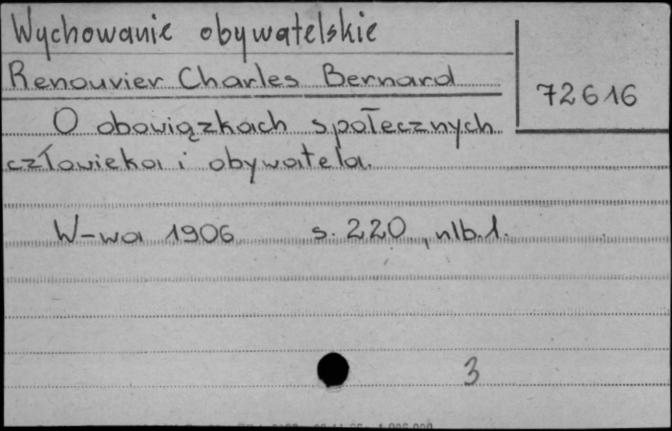 Wychowanie obywatelskie
Renouvier Charles Bernard
72616
O obowiązkach społecznych
człowieka i obywatela.
W-wa 1906 s. 220, nlb. 1.
3